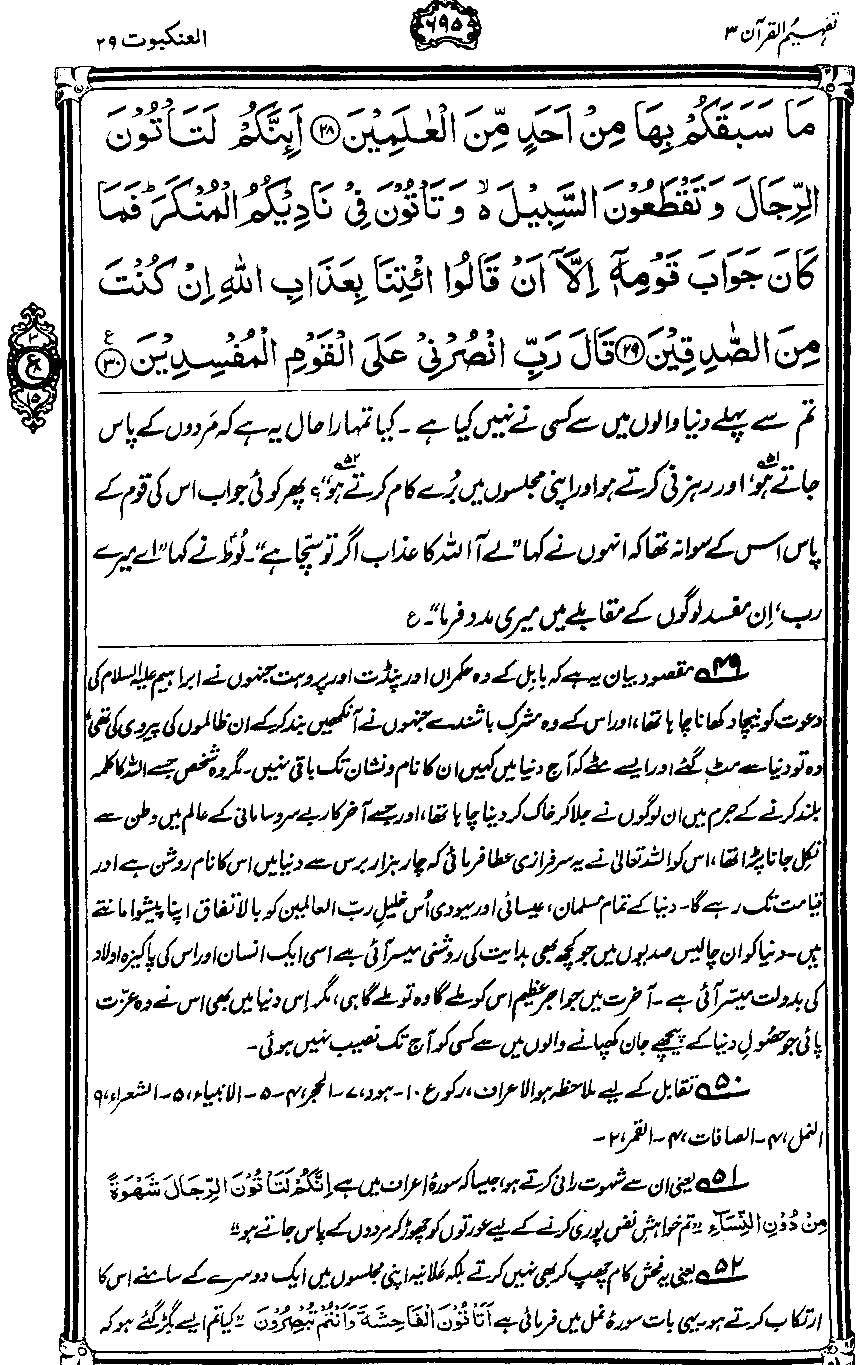 تفہیم القرآن ۳
۶۹۵
العنکبوت ۲۹
مَا سَبَقَكُمْ بِهَا مِنْ اَحَدٍ مِّنَ الْعٰلَمِيْنَ ۝۲۸ اَئِنَّكُمْ لَتَاْتُوْنَ
الرِّجَالَ وَ تَقْطَعُوْنَ السَّبِيْلَ ۙ۬ وَ تَاْتُوْنَ فِيْ نَادِيْكُمُ الْمُنْكَرَ ؕ فَمَا
كَانَ جَوَابَ قَوْمِهٖٓ اِلَّاۤ اَنْ قَالُوا ائْتِنَا بِعَذَابِ اللّٰهِ اِنْ كُنْتَ
مِنَ الصّٰدِقِيْنَ ۝۲۹ قَالَ رَبِّ انْصُرْنِيْ عَلَى الْقَوْمِ الْمُفْسِدِيْنَ ۝۳۰ ع
۲
ع
۱۵
تم سے پہلے دنیا والوں میں سے کسی نے نہیں کیا ہے۔ کیا تمہارا حال یہ ہے کہ مَردوں کے پاس
جاتے ہو۵۱، اور رہزنی کرتے ہو اور اپنی مجلسوں میں بُرے کام کرتے ہو۵۲“؟ پھر کوئی جواب اس کی قوم کے
پاس اس کے سوا نہ تھا کہ انہوں نے کہا ”لے آ اللہ کا عذاب اگر تو سچّا ہے“۔ لُوطؑ نے کہا ”اے میرے
رب، اِن مفسد لوگوں کے مقابلے میں میری مدد فرما“۔ ع
۴۹ مقصودِ بیان یہ ہے کہ بابل کے وہ حکمراں اور پنڈت اور پروہت جنہوں نے ابراہیم علیہ السلام کی
دعوت کو نیچا دکھانا چاہا تھا، اور اس کے وہ مشرک باشندے جنہوں نے آنکھیں بند کر کے ان ظالموں کی پیروی کی تھی،
وہ تو دنیا سے مٹ گئے اور ایسے مٹے کہ آج دنیا میں کہیں ان کا نام و نشان تک باقی نہیں۔ مگر وہ شخص جسے اللہ کا کلمہ
بلند کرنے کے جرم میں ان لوگوں نے جلا کر خاک کر دینا چاہا تھا، اور جسے آخرکار بے سروسامانی کے عالم میں وطن سے
نکل جانا پڑا تھا، اس کو اللہ تعالیٰ نے یہ سرفرازی عطا فرمائی کہ چار ہزار برس سے دنیا میں اس کا نام روشن ہے اور
قیامت تک رہے گا۔ دنیا کے تمام مسلمان، عیسائی اور یہودی اُس خلیلِ ربّ العالمین کو بالاتفاق اپنا پیشوا مانتے
ہیں۔ دنیا کو ان چالیس صدیوں میں جو کچھ بھی ہدایت کی روشنی میسر آئی ہے اسی ایک انسان اور اس کی پاکیزہ اولاد
کی بدولت میسّر آئی ہے۔ آخرت میں جو اجرِ عظیم اس کو ملے گا وہ تو ملے گا ہی، مگر اِس دنیا میں بھی اس نے وہ عزّت
پائی جو حصُولِ دنیا کے پیچھے جان کھپانے والوں میں سے کسی کو آج تک نصیب نہیں ہوئی۔
۵۰ تقابل کے لیے ملاحظہ ہو الاعراف، رکوع ۱۰۔ ہود، ۷۔ الحجر، ۴-۵۔ الانبیاء، ۵۔ الشعراء، ۹
النمل، ۴۔ الصافات، ۴۔ القمر، ۲۔
۵۱ یعنی ان سے شہوت رانی کرتے ہو، جیسا کہ سورۂ اعراف میں ہے اِنَّكُمْ لَتَاْتُوْنَ الرِّجَالَ شَهْوَةً
مِنْ دُوْنِ النِّسَاءِ ”تم خواہشِ نفس پوری کرنے کے لیے عورتوں کو چھوڑ کر مردوں کے پاس جاتے ہو“
۵۲ یعنی یہ فحش کام چھپ کر بھی نہیں کرتے بلکہ علانیہ اپنی مجلسوں میں ایک دوسرے کے سامنے اس کا
ارتکاب کرتے ہو۔ یہی بات سورۂ نمل میں فرمائی ہے اَتَاْتُوْنَ الْفَاحِشَةَ وَاَنْتُمْ تُبْصِرُوْنَ ”کیا تم ایسے بگڑ گئے ہو کہ